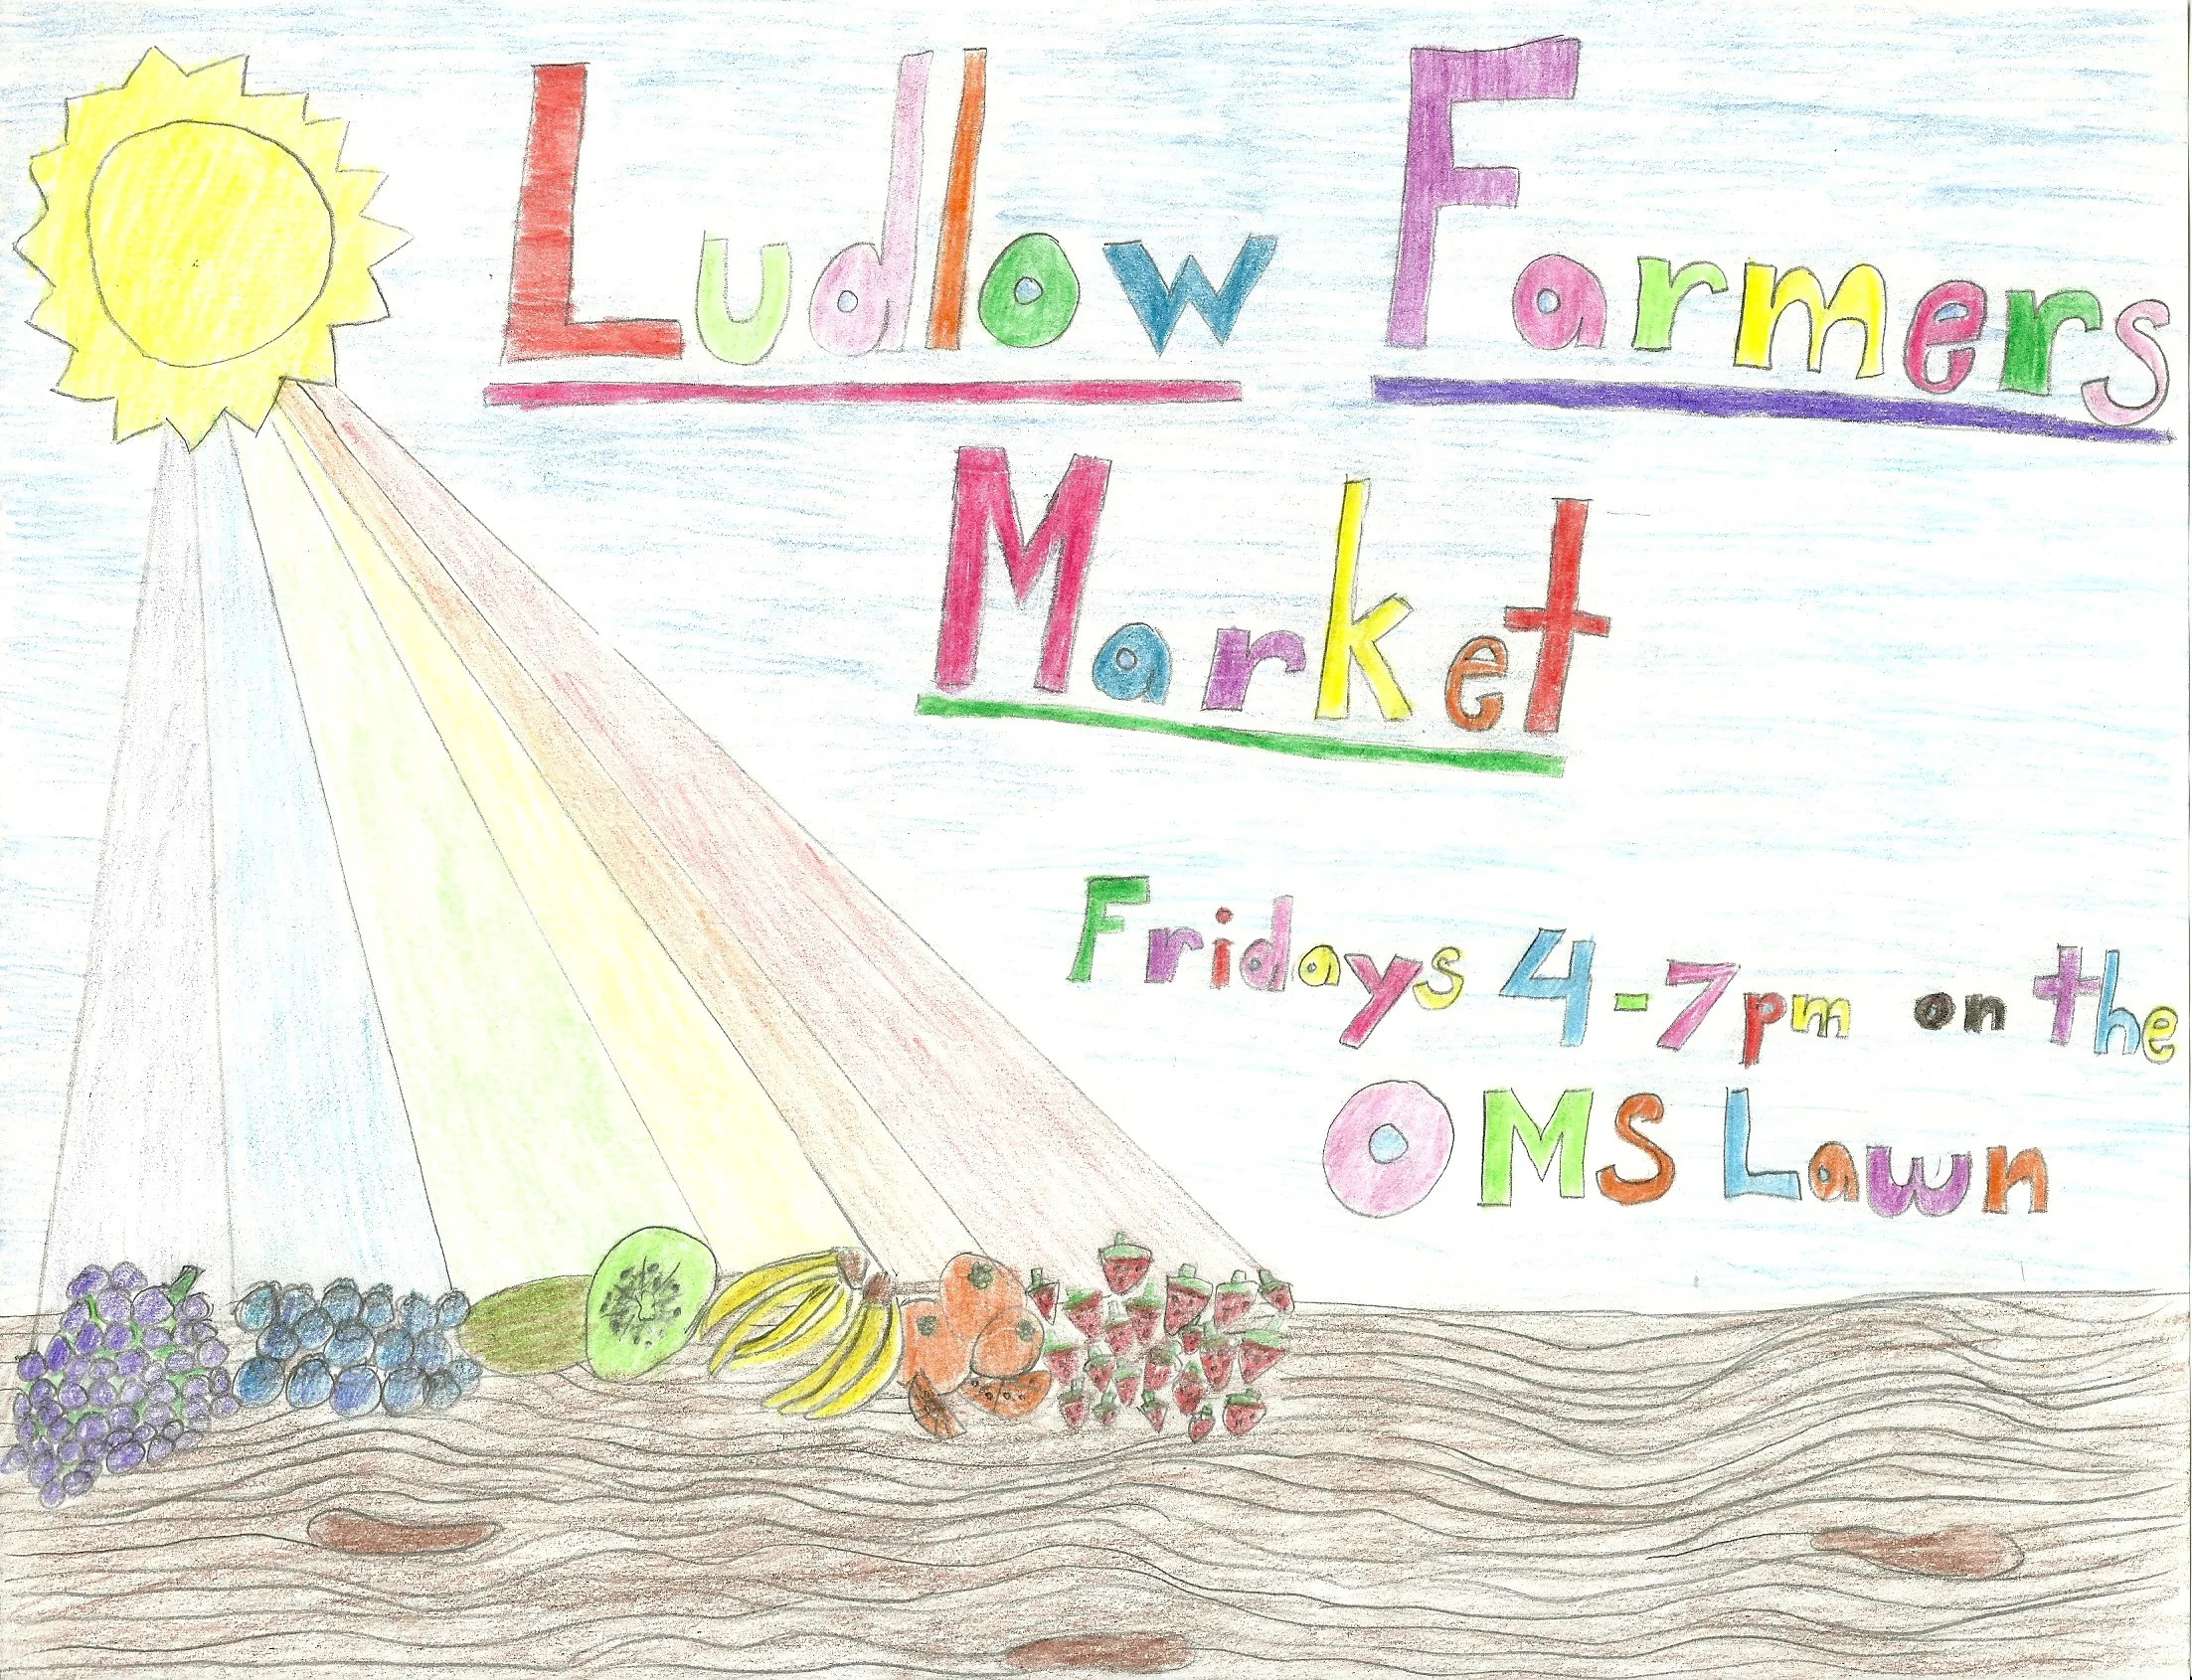 Ludlow Farmers
Market
Fridays 4-7pm on the
OMS Lawn